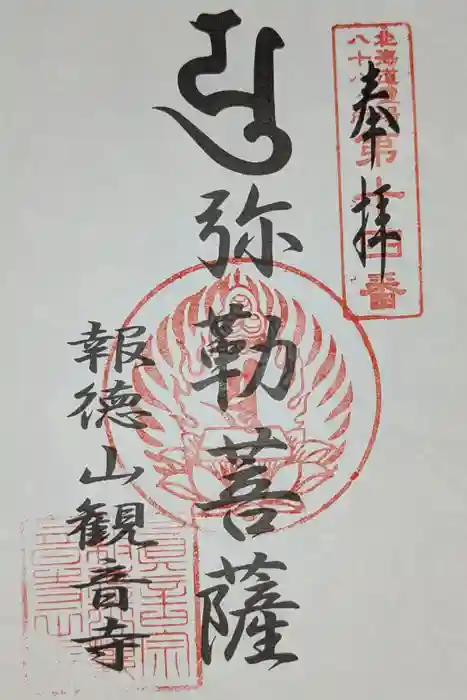 奉拝
北海道
八十
第十四番
弥勒菩薩
報徳山観音寺